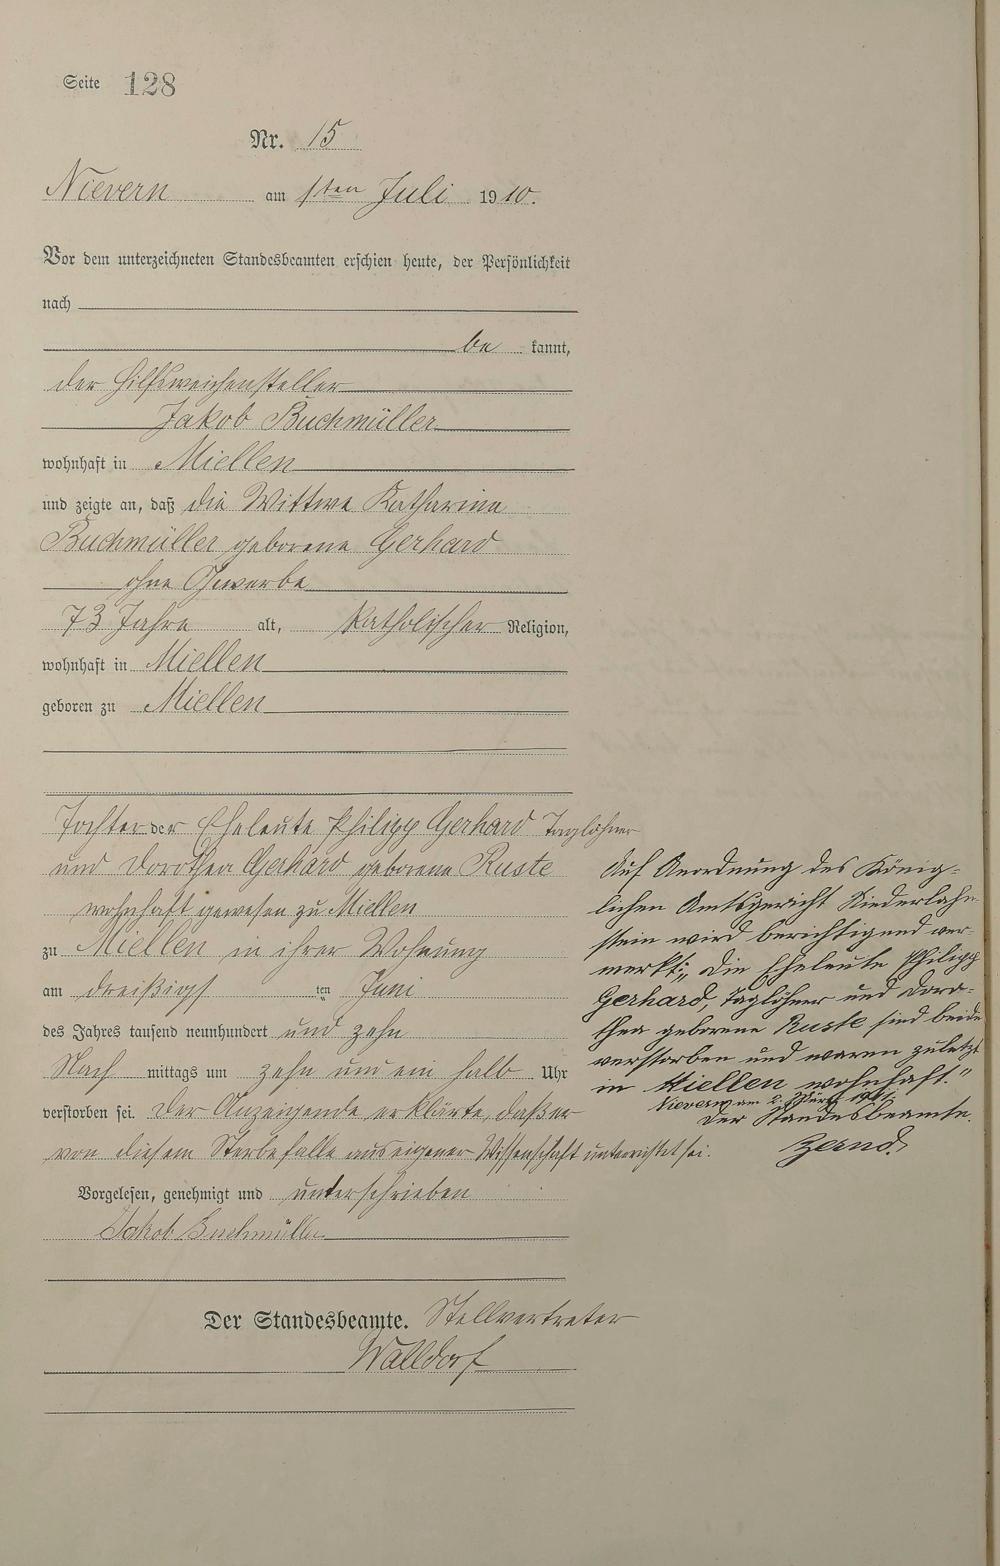 Seite 128
Nr. 15
Nievern am 1ten Juli 1910.
Vor dem unterzeichneten Standesbeamten erschien heute, der Persönlichkeit
nach
be kannt,
der Hilfsweichensteller
Jakob Buchmüller
wohnhaft in Miellen
und zeigte an, daß die Wittwe Katharina
Buchmüller geborene Gerhard
ohne Gewerbe
73 Jahre alt, katholischer Religion,
wohnhaft in Miellen
geboren zu Miellen
Tochter der Eheleute Philipp Gerhard Taglöhner
und Dorothea Gerhard geborene Ruste
wohnhaft gewesen zu Miellen
zu Miellen in ihrer Wohnung
am dreißigs ten Juni
des Jahres tausend neunhundert und zehn
Nach mittags um zehn um ein halb Uhr
verstorben sei. Der Anzeigende erklärte, daß er
von diesem Sterbefalle aus eigener Wissenschaft unterrichtet sei.
Vorgelesen, genehmigt und unterschrieben
Jakob Buchmüller
Der Standesbeamte. Stellvertreter
Walldorf
Auf Anordnung des König-
lichen Amtsgericht Niederlahn-
stein wird berichtigend ver-
merkt: „Die Eheleute Philipp
Gerhard, Taglöhner und Doro-
thea geborene Ruste sind beide
verstorben und waren zuletzt
in Miellen wohnhaft."
Nievern am 2. März 1911.
Der Standesbeamte.
Zernd.